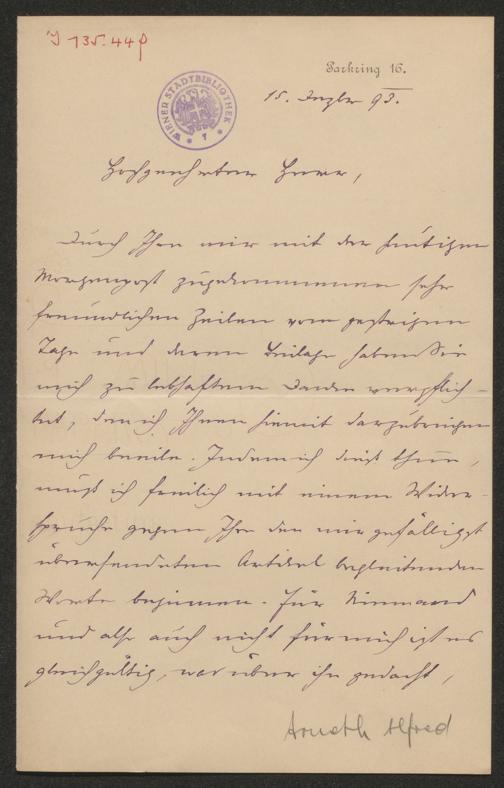 J 135.448
Parkring 16.
WIENER STADTBIBLIOTHEK
15. Dezbr 93.
Hochgeehrter Herr,
Durch Ihre mir mit der heutigen
Morgenpost zugekommenen sehr
freundlichen Zeilen vom gestrigen
Tage und deren Beilage haben Sie
mich zu lebhaftem Danke verpflich-
tet, den ich Ihnen hiemit darzubringen
mich beeile. Indem ich dieß thue,
muß ich freilich mit einem Wider-
spruche gegen Ihre den mir gefälligst
übersendeten Artikel begleitenden
Worte beginnen. Für Niemand
und also auch nicht für mich ist es
gleichgültig, was über ihn gedacht,
Arneth Alfred